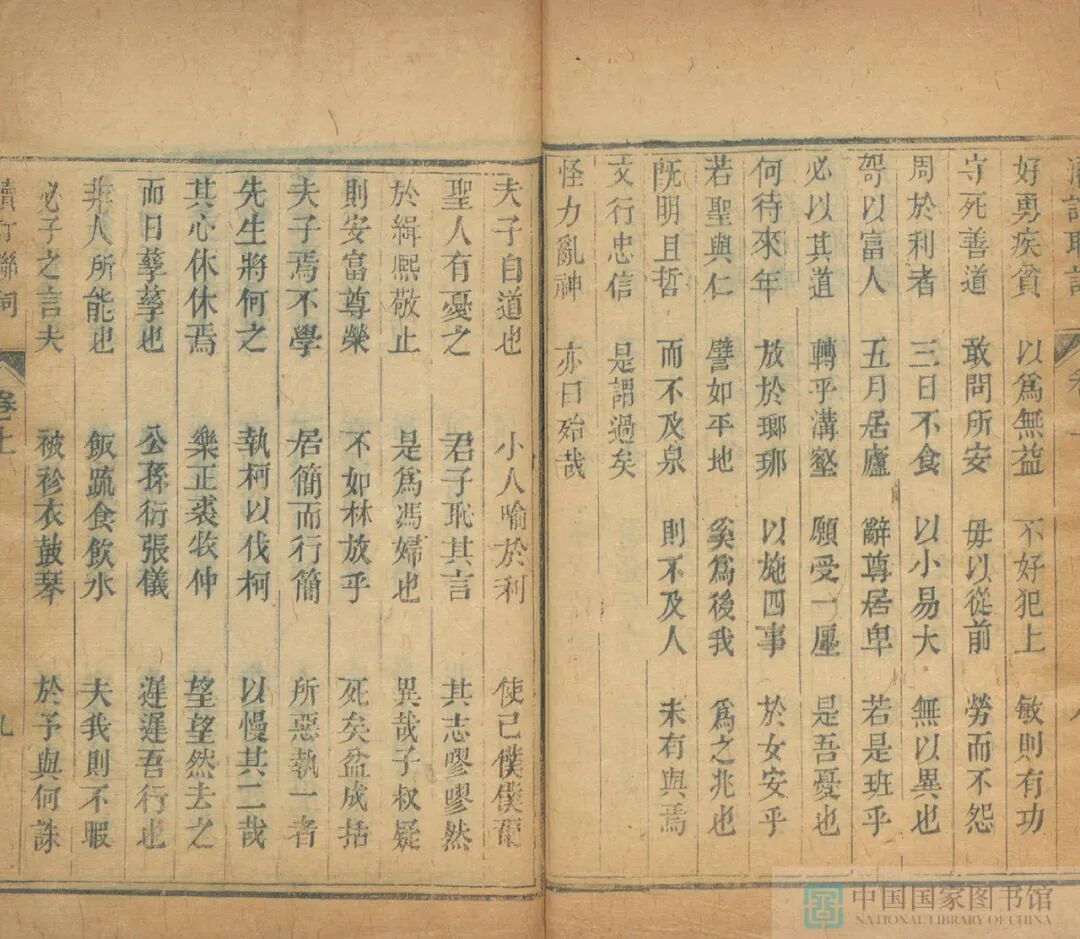 好勇疾貧 以爲無益 不好犯上 敏則有功
守死善道 敢問所安 毋以從前 勞而不怨
周於利者 三日不食 以小易大 無以異也
哿以富人 五月居廬 辭尊居卑 若是班乎
必以其道 轉乎溝壑 願受一廛 是吾憂也
何待來年 放於瑯琊 以施四事 於女安乎
若聖與仁 譬如平地 奚爲後我 爲之兆也
既明且哲 而不及泉 則不及人 未有與焉
文行忠信 是謂過矣
怪力亂神 亦曰殆哉
夫子自道也 小人喻於利 使己僕僕爾
聖人有憂之 君子恥其言 其志嘐嘐然
於緝熙敬止 是爲馮婦也 異哉子叔疑
則安富尊榮 不如林放乎 死矣盆成括
夫子焉不學 居簡而行簡 所惡執一者
先生將何之 執柯以伐柯 以慢其二哉
其心休休焉 樂正裘牧仲 望望然去之
而日孳孳也 公孫衍張儀 遲遲吾行也
非人所能也 飯疏食飲水 夫我則不暇
必子之言夫 被袗衣鼓琴 於予與何誅
卷上 九
中国国家图书馆
NATIONAL LIBRARY OF CHINA